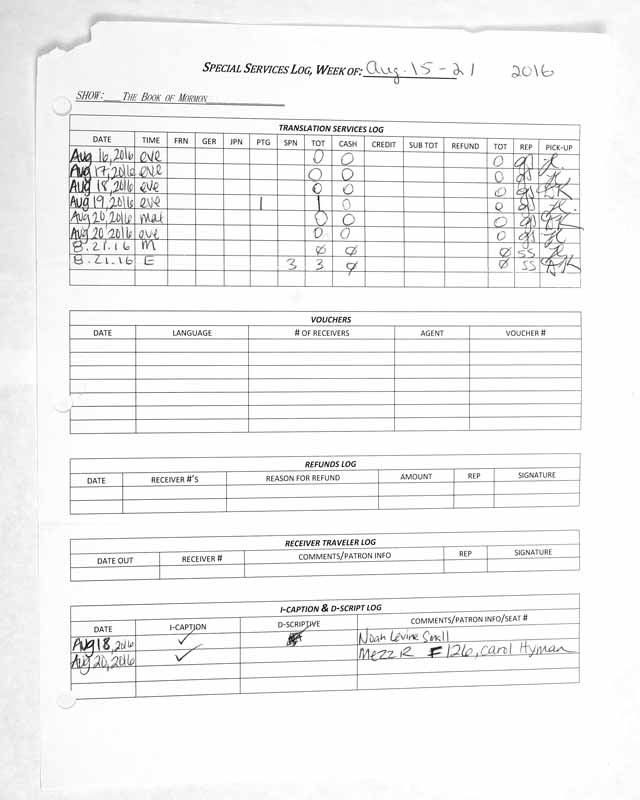 SPECIAL SERVICES LOG, WEEK OF: Aug. 15-21 2016
SHOW: THE BOOK OF MORMON
TRANSLATION SERVICES LOG
DATE TIME FRN GER JPN PTG SPN TOT CASH CREDIT SUB TOT REFUND TOT REP PICK-UP
Aug 16, 2016 eve 0 0 0 gs
Aug 17, 2016 eve 0 0 0 gs
Aug 18, 2016 eve 0 0 0 gs
Aug 19, 2016 eve 1 1 0 0 gs
Aug 20, 2016 mat 0 0 0 gs
Aug 20 2016 eve 0 0 0 gs
8.21.16 M Ø Ø Ø SS
8.21.16 E 3 3 Ø Ø SS
VOUCHERS
DATE LANGUAGE # OF RECEIVERS AGENT VOUCHER #
REFUNDS LOG
DATE RECEIVER #'S REASON FOR REFUND AMOUNT REP SIGNATURE
RECEIVER TRAVELER LOG
DATE OUT RECEIVER # COMMENTS/PATRON INFO REP SIGNATURE
I-CAPTION & D-SCRIPT LOG
DATE I-CAPTION D-SCRIPTIVE COMMENTS/PATRON INFO/SEAT #
Aug 18, 2016 ✓ Noah Levine Small
Aug 20, 2016 ✓ Mezz R F126, Carol Hyman